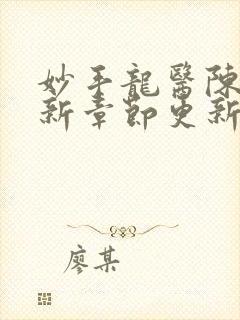 妙手龍醫陳
新章節更新
廖某